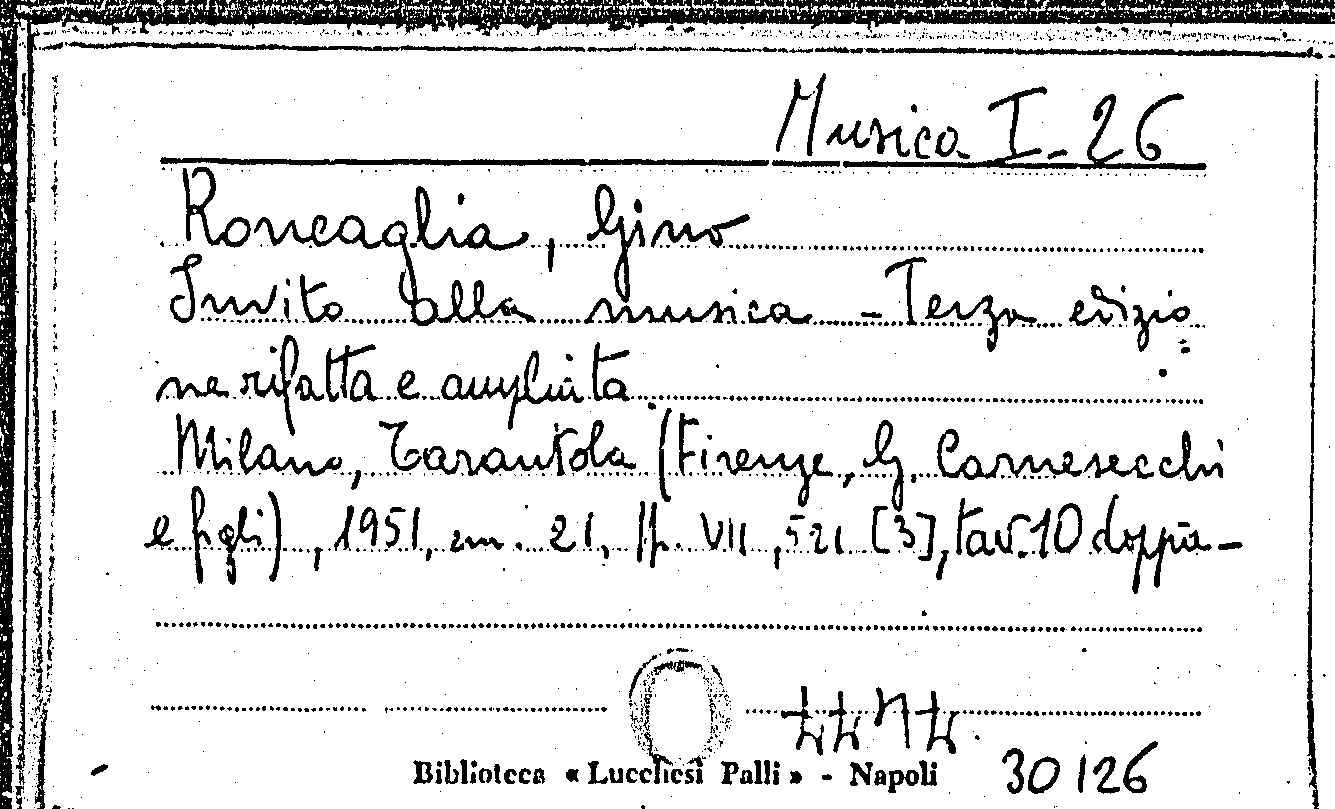 Musica I-26
Roncaglia, Gino
Invito alla musica - Terza edizio
ne rifatta e ampliata.
Milano, Tarantola (Firenze, G. Carnesecchi
e figli), 1951, cm. 21, pp. VII, 521 [3], tav. 10 doppia-
Biblioteca « Lucchesi Palli » - Napoli 30126